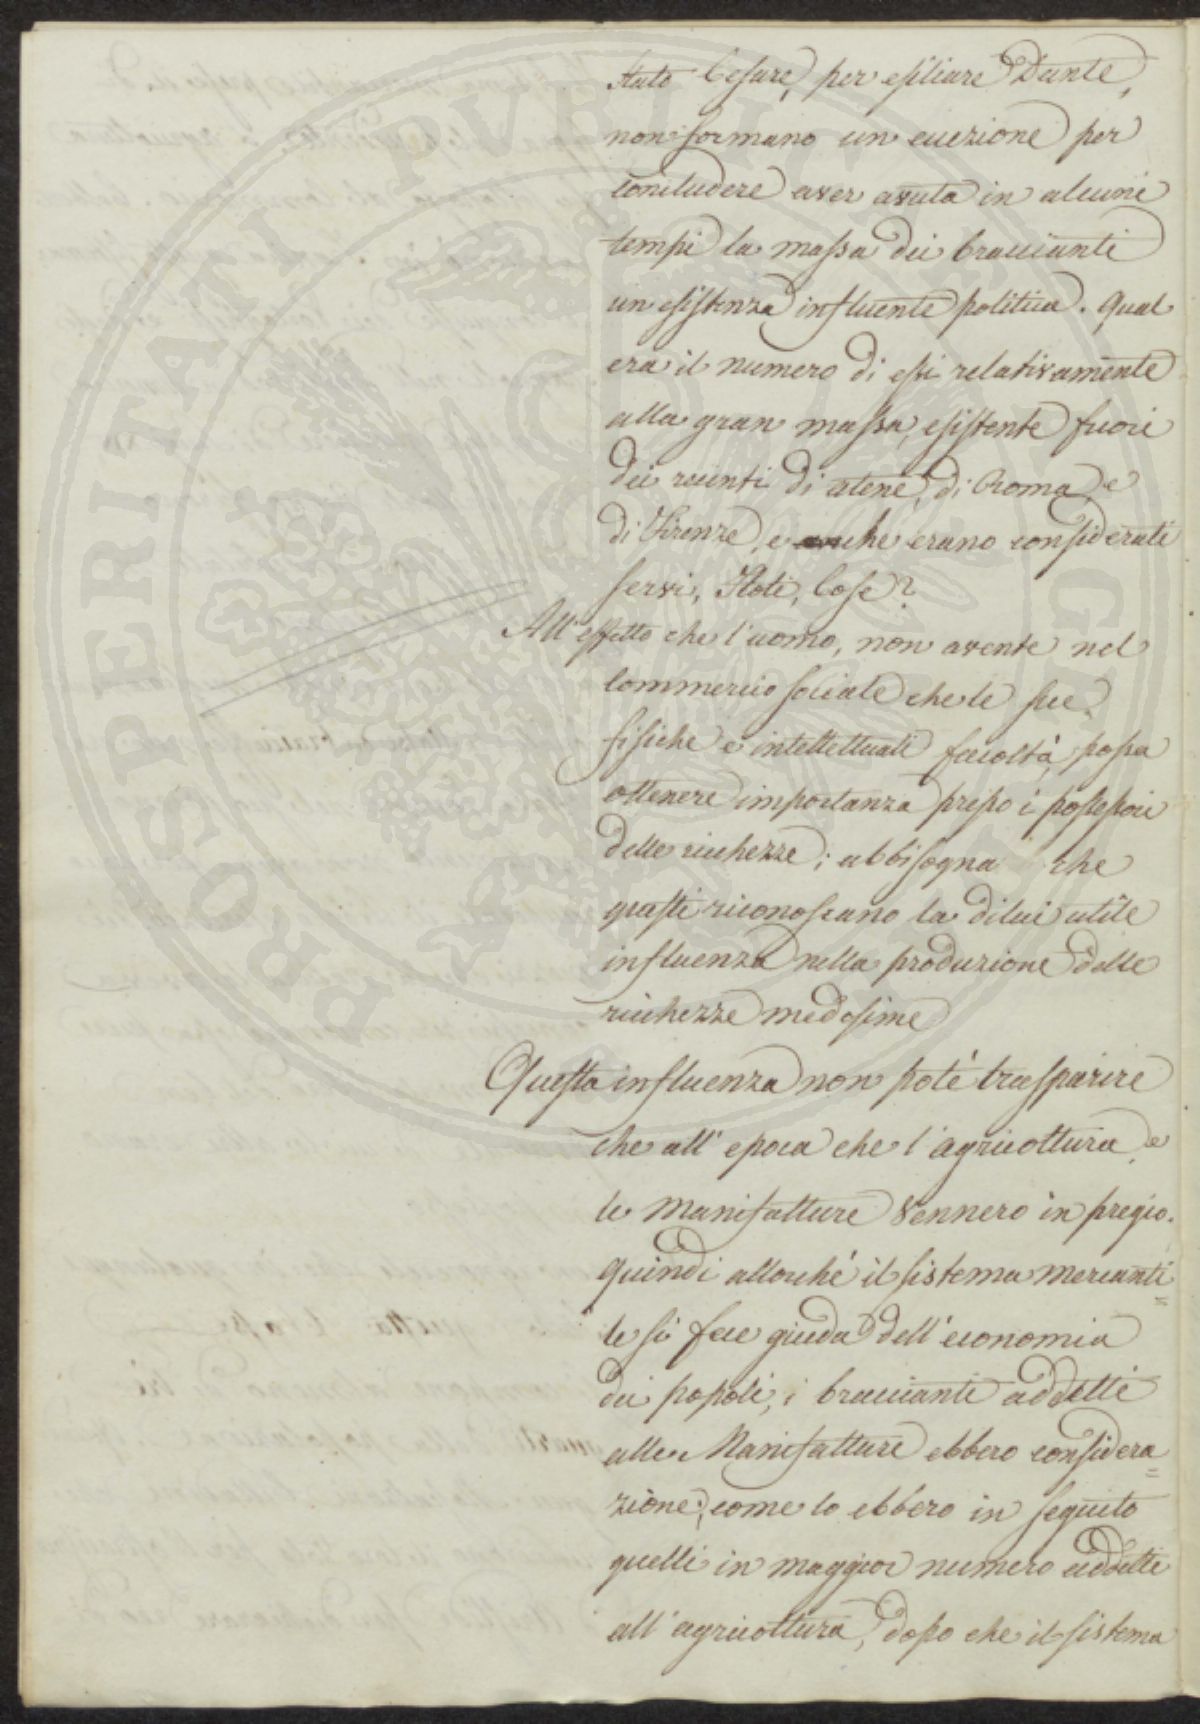 stato Cesare, per esiliare Dante,
non formano un eccezione per
concludere aver avuta in alcuni
tempi la massa dei braccianti
un esistenza influente politica. Qual
era il numero di essi relativamente
alla gran massa, esistente fuori
dei recinti di Atene, di Roma, e
di Firenze, e che erano considerati
servi, Iloti, Cose?
All'effetto che l'uomo, non avente nel
commercio sociale che le sue
fisiche e intellettuali facoltà, possa
ottenere importanza presso i possessori
delle ricchezze; abbisogna che
questi riconoscano la dilui utile
influenza nella produzione delle
ricchezze medesime
Questa influenza non poté trasparire
che all'epoca che l'agricoltura, e
le Manifatture vennero in pregio.
quindi allorché il sistema mercanti=
le si fece giuda dell'economia
dei popoli, i braccianti addetti
alle Manifatture ebbero considera=
zione; come lo ebbero in seguito
quelli in maggior numero addetti
all'agricoltura, dopo che il sistema
PROSPERITATI PVBLICAE